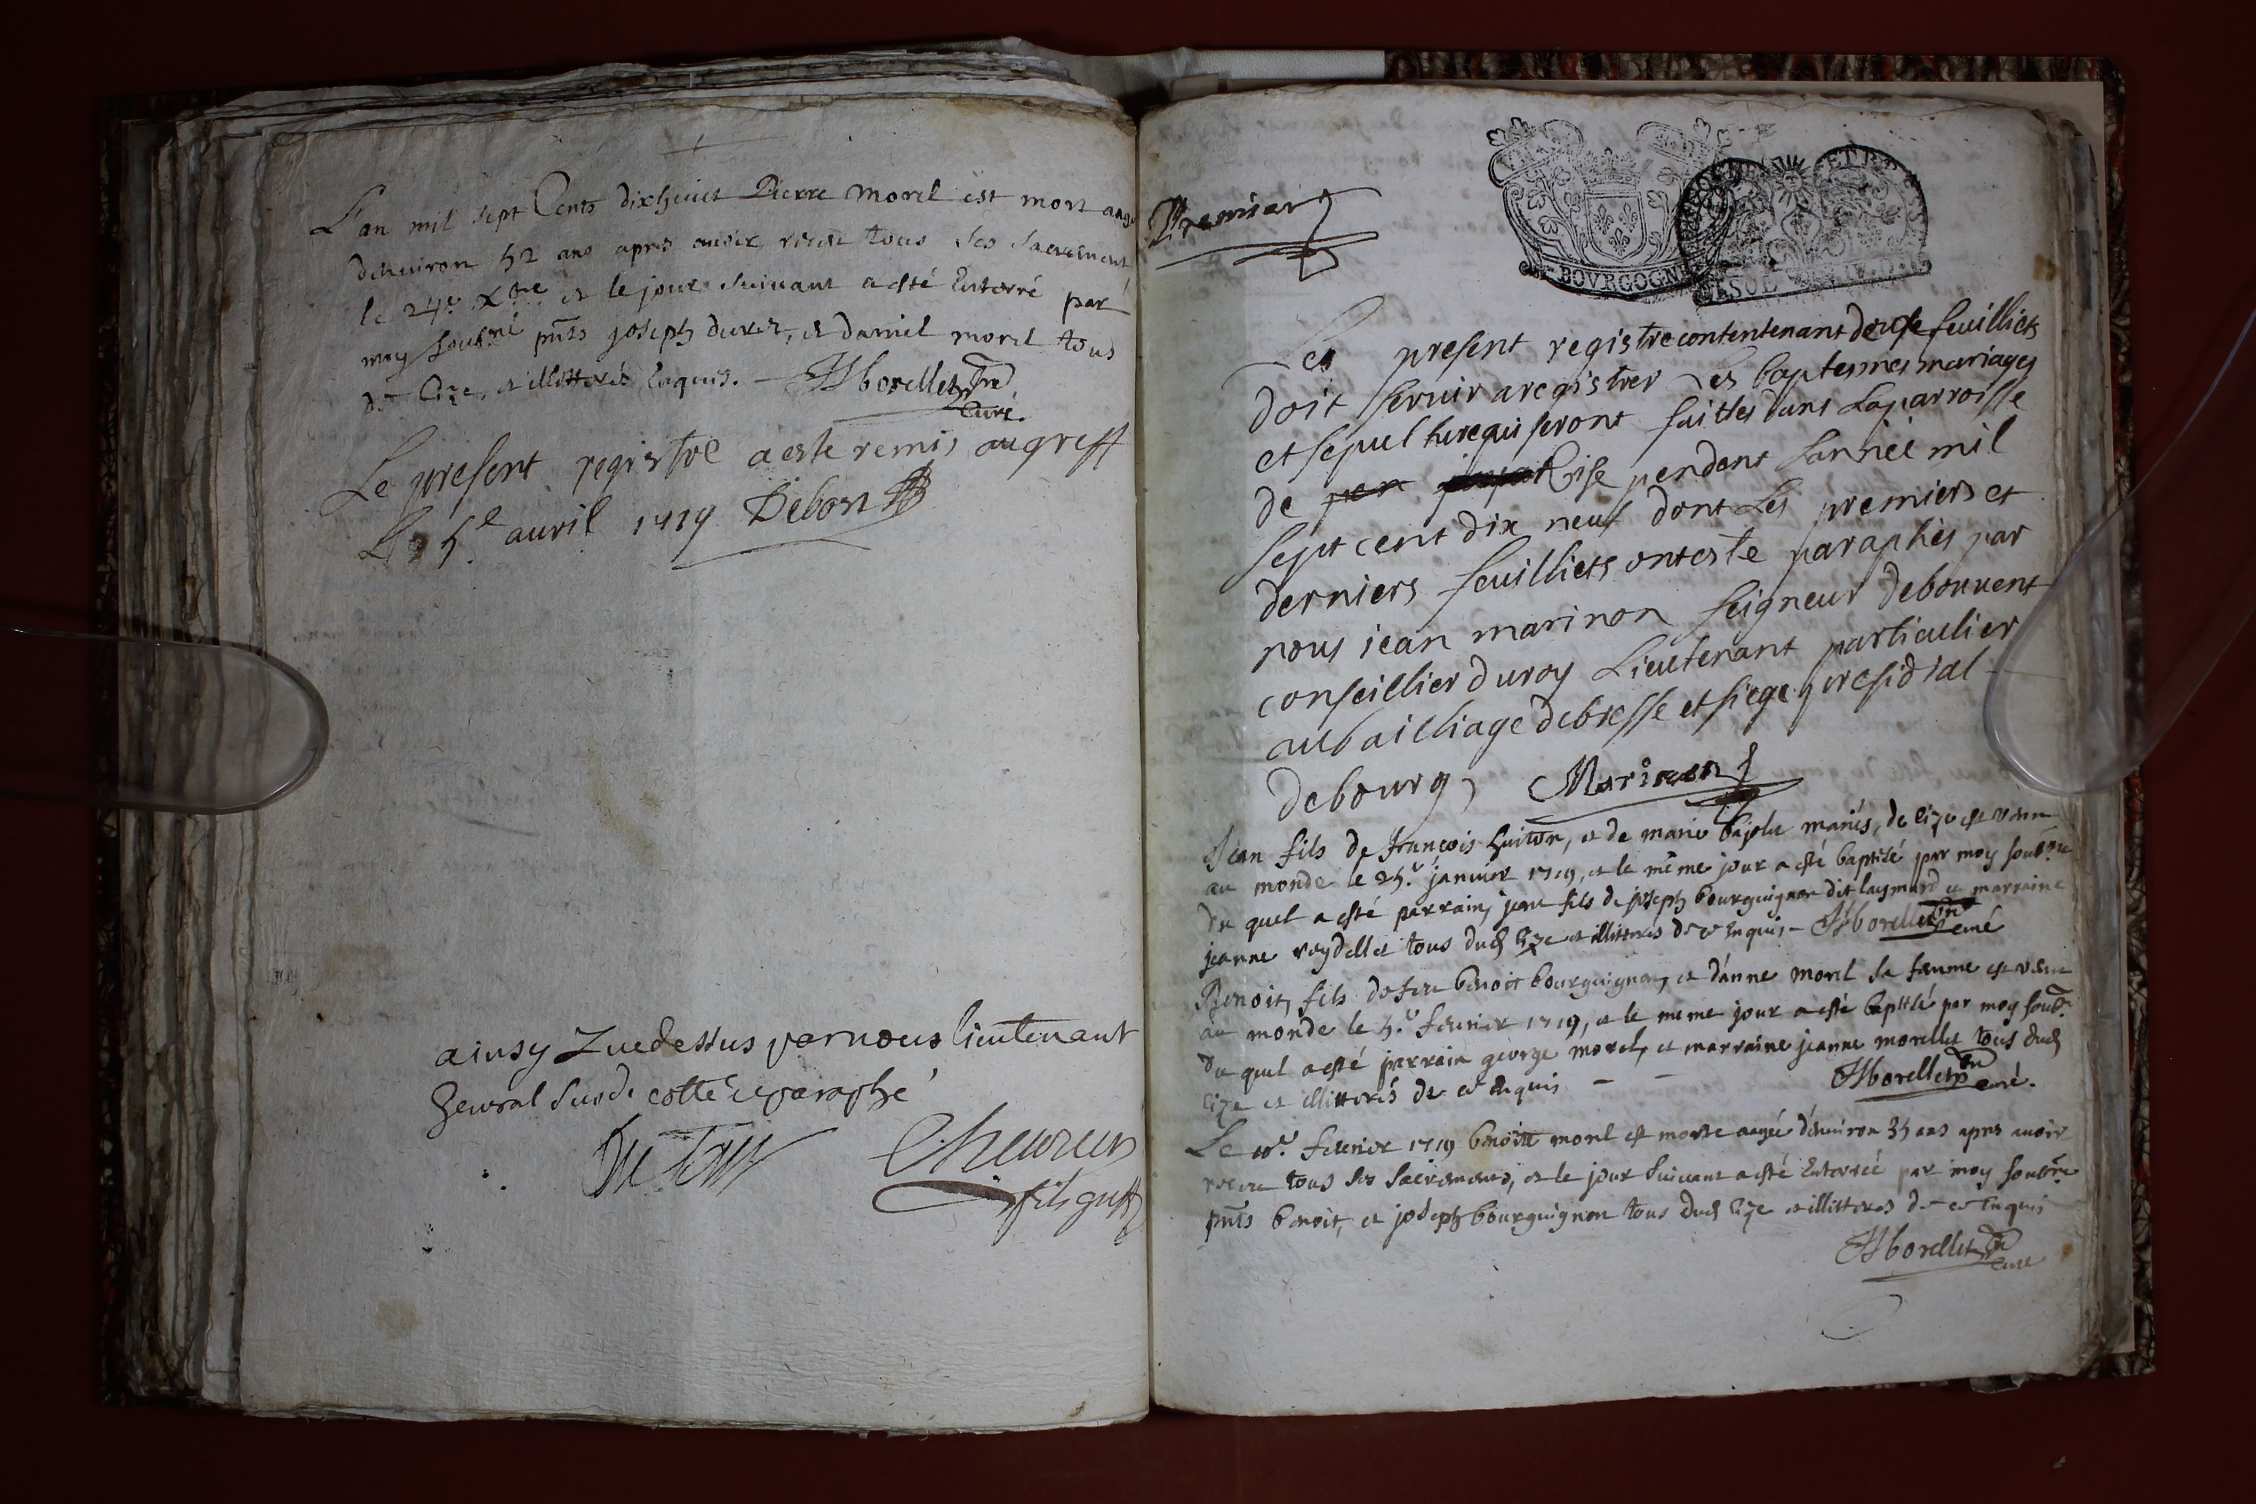 L'an mil sept Cents dixhuict Pierre morel est mort aagé
denuiron 52 ans apres auoir receu tous ses sacrement
le 24e Xbre et le jour suiuant a esté Enterré par
moy soubné pnts joseph duret, et daniel morel tous
de Cize, et illitterés Enquis. HBorellet pre
curé.
Le present registre a este remis au greff
Le 5e auril 1719 Debon
ainsy par nous lieutenant
general susd. cotté et paraphé
Cheureu
fils greff
Premier
BOVRGOGNE
Le present registre contentenant deuse feuilliets
doit seruir a registrer les baptesmes mariages
et sepulture qui seront faittes dans La parroisse
de par Cise pendent Lannéé mil
sept cent dix neuf dont Les premiers et
derniers feuilliets ont este paraphés par
nous iean marinon seigneur debouuent
conseillier du roy Lieutenant particulier
au bailliage debresse et siege presidial
debourg Marinon
Jean fils de François Guiton, et de marie bajolu mariés, de Cize est venu
au monde le 25e januier 1719, et le même jour a esté baptisé par moy soubné
du quel a esté parrain, jean fils de joseph bourguignon dit et marraine
jeanne reydellet tous dud Cize et illitterés de ce Enquis - HBorellet pre curé
Benoit, fils de feu benoit bourguignon, et d'anne morel sa femme est venu
au monde le 5e feurier 1719, et le meme jour a esté baptisé par moy soubné
du quel a esté parrain george morel, et marraine jeanne morellet tous dud
Cize et illitterés de ce Enquis - - HBorellet pre curé.
Le 10e feurier 1719 benoitte morel est morte aagée d'enuiron 35 ans apres auoir
receu tous ses sacrements, et le jour suiuant a esté Enterrée par moy soubné
pnts benoit, et joseph bourguignon tous dud Cize et illitterés de ce Enquis
HBorellet pre
curé